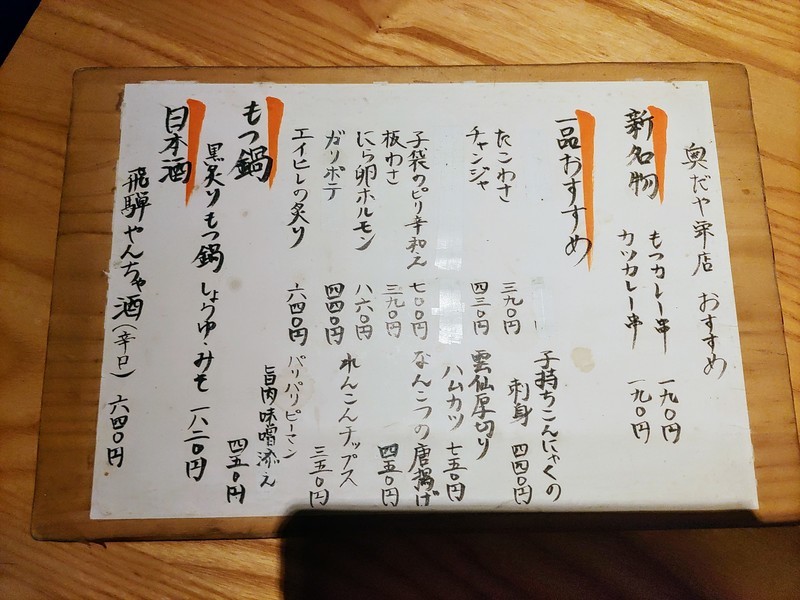 奥だや本店 おすすめ
新名物
もつカレー串 一九〇円
カツカレー串 一九〇円
一品おすすめ
たこわさ 三九〇円
チャンジャ 四三〇円
子袋のピリ辛和え 七〇〇円
板わさ 三九〇円
にら卵ホルモン 八六〇円
ガリポテ 四四〇円
エイヒレの炙り 六四〇円
子持ちこんにゃくの
刺身 四四〇円
雲仙厚切り
ハムカツ 七五〇円
なんこつの唐揚げ
四五〇円
れんこんチップス
三五〇円
パリパリピーマン
旨肉味噌添え
四五〇円
もつ鍋
黒炙りもつ鍋 しょうゆ・みそ 一八二〇円
日本酒
飛騨やんちゃ酒(辛口) 六四〇円